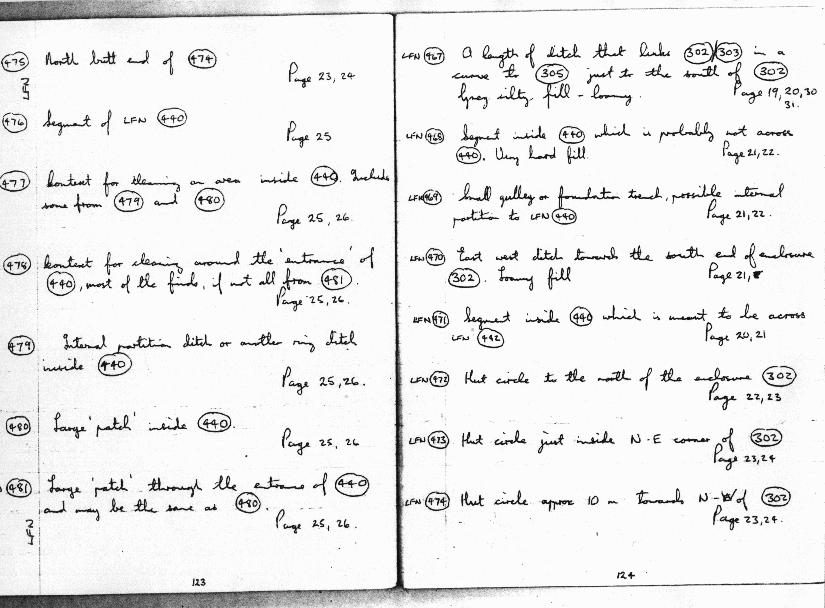 475 North butt end of 474
Page 23, 24
476 Segment of LFN 440
Page 25
477 Context for cleaning an area inside 440. Includes
some from 479 and 480
Page 25, 26.
478 Context for cleaning around the 'entrance' of
440, most of the finds, if not all from 481.
Page 25, 26.
479 Internal partition ditch or another ring ditch
inside 440
Page 25, 26.
480 Large 'patch' inside 440.
Page 25, 26
481 Large 'patch' through the entrance of 440
and may be the same as 480.
Page 25, 26.
123
LFN 467 A length of ditch that links 302/303 in a
curve to 305 just to the south of 302
Grey silty fill - loamy.
Page 19, 20, 30
31.
LFN 468 Segment inside 440 which is probably not across
440. Very hard fill.
Page 21, 22.
LFN 469 Small gulley or foundation trench, possible internal
partition to LFN 440
Page 21, 22.
LFN 470 East west ditch towards the south end of enclosure
302. Loamy fill
Page 21,
LFN 471 Segment inside 440 which is meant to be across
LFN 442
Page 20, 21
LFN 472 Hut circle to the north of the enclosure 302
Page 22, 23
LFN 473 Hut circle just inside N-E corner of 302
Page 23, 24
LFN 474 Hut circle approx 10 m towards N- of 302
Page 23, 24.
124